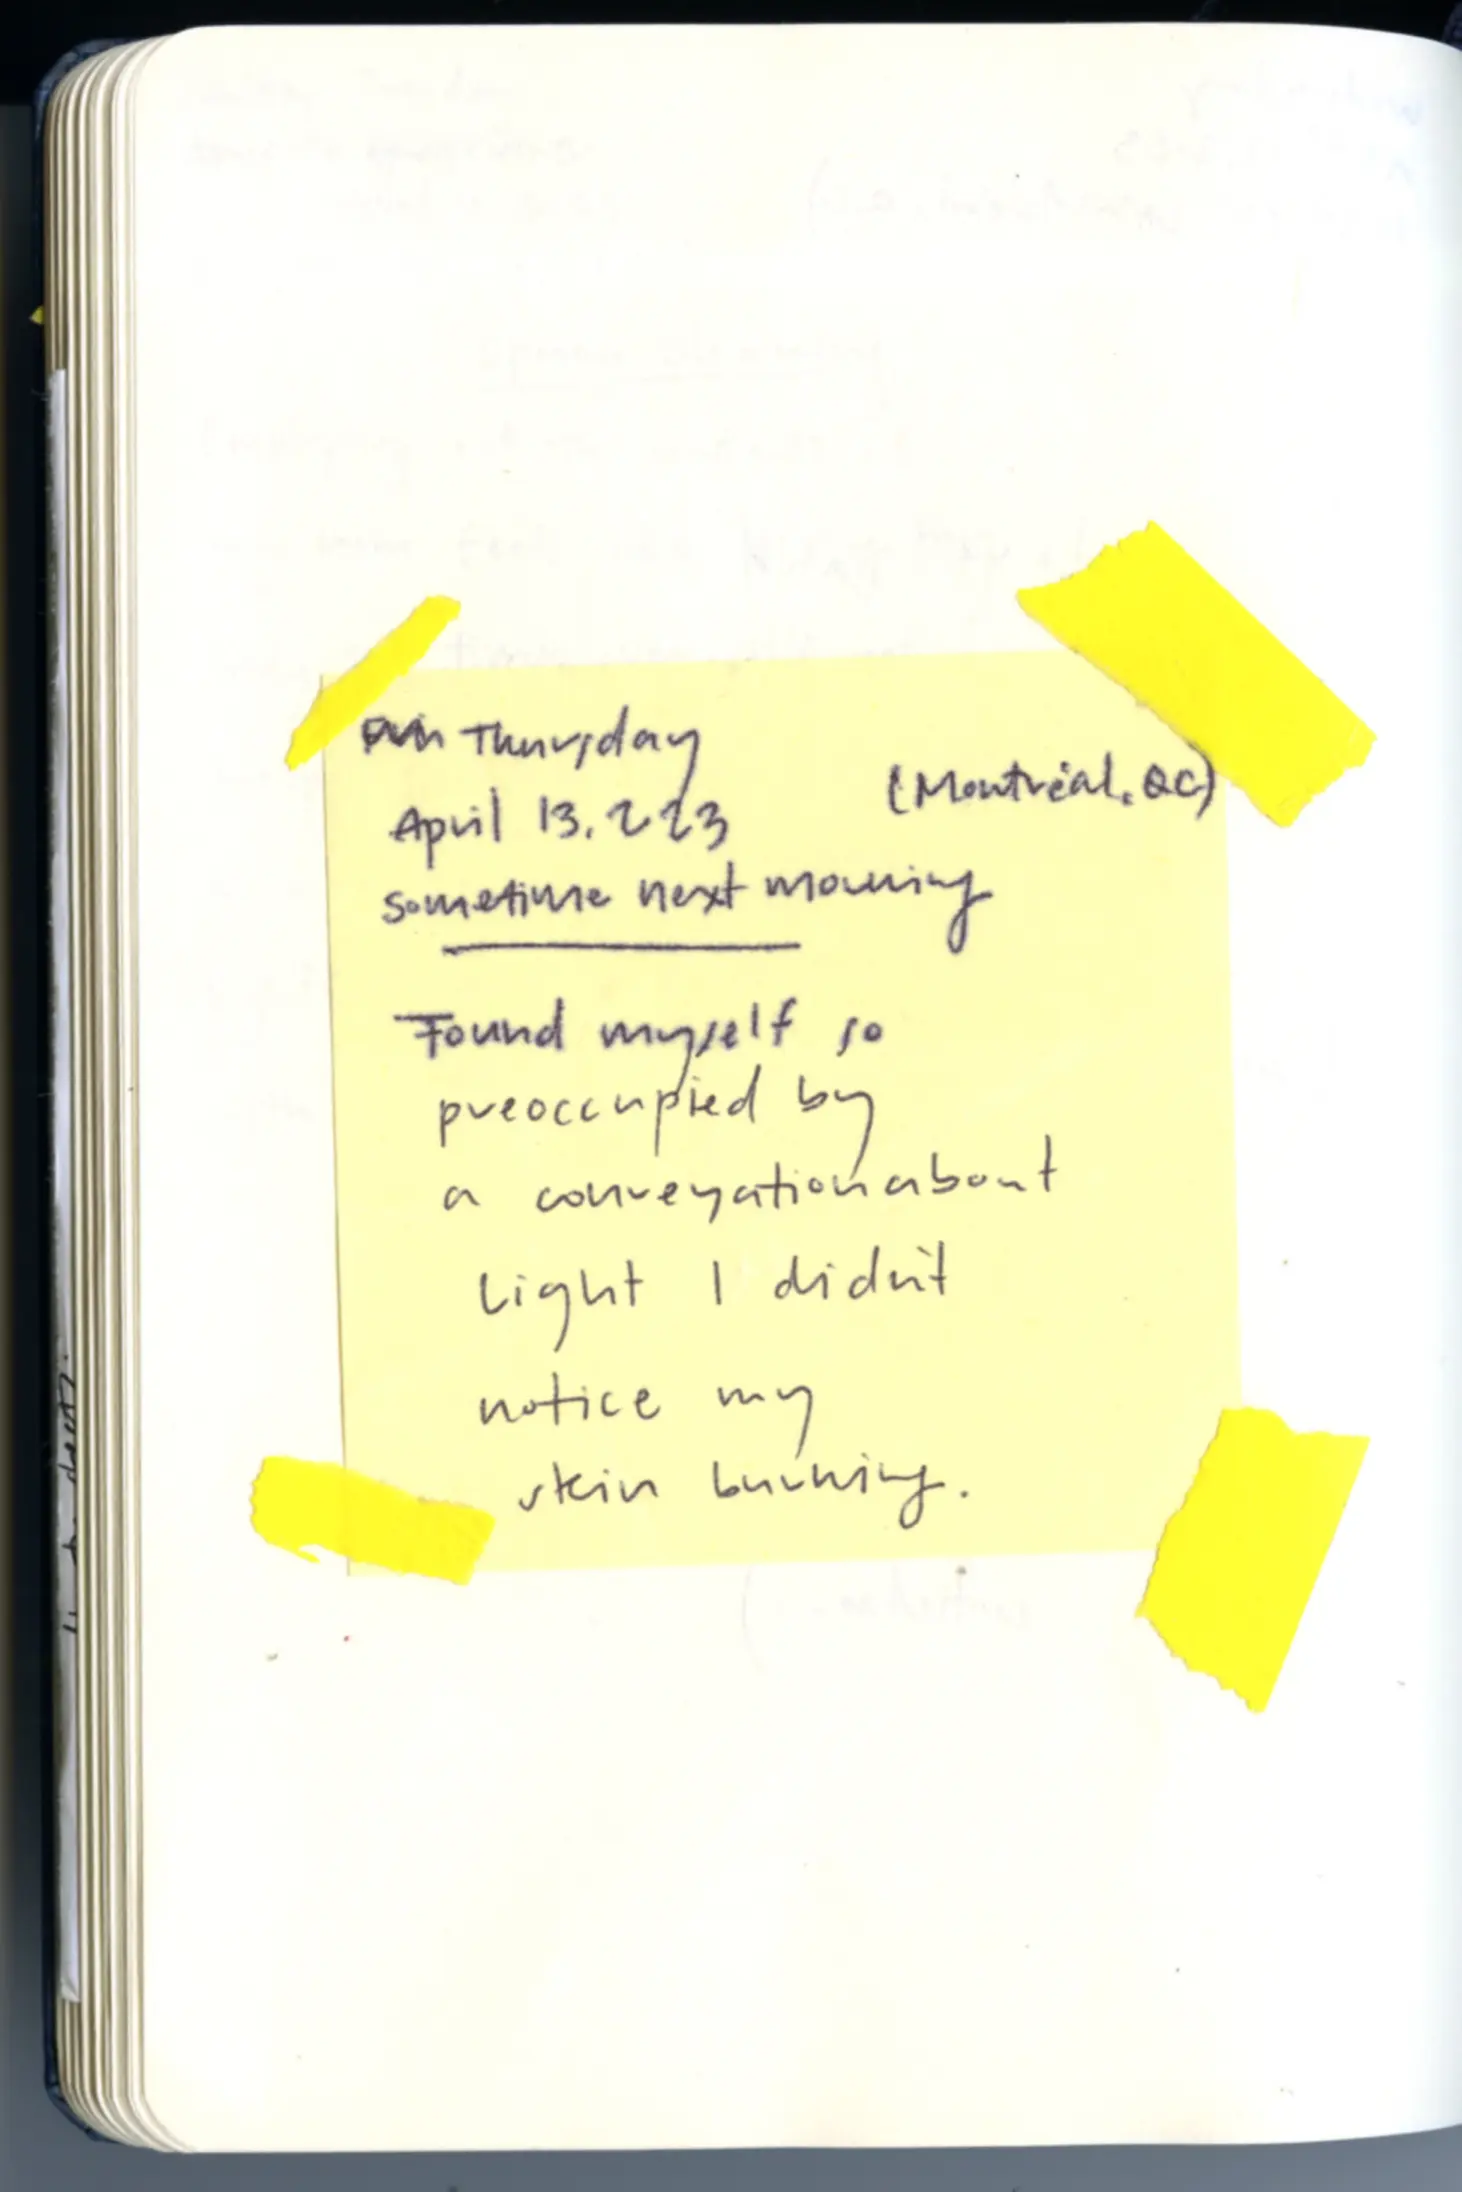 Thursday
(Montréal, QC)
April 13, 2023
sometime next morning
Found myself so
preoccupied by
a conversation about
Light I didn't
notice my
skin burning.